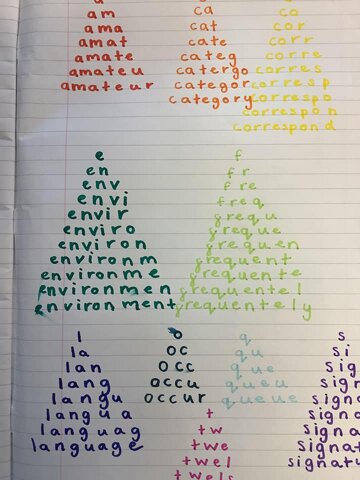 a
am
ama
amat
amate
amateu
amateur
ca
cat
cate
categ
catergo
categor
category
co
cor
corr
corre
corres
corresp
correspo
correspon
correspond
e
en
env
envi
envir
enviro
environ
environm
environme
environmen
environment
f
fr
fre
freq
frequ
freque
frequen
frequent
frequente
frequentel
frequentely
l
la
lan
lang
langu
langua
languag
language
o
oc
occ
occu
occur
q
qu
que
queu
queue
t
tw
twe
twel
twels
s
si
sig
sign
signa